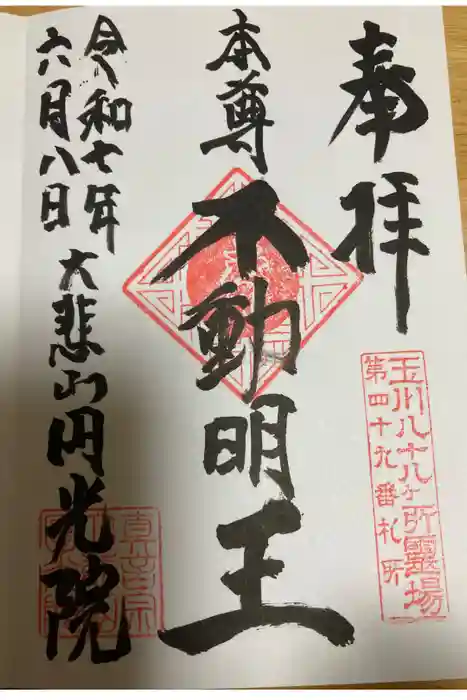 奉拝
玉川八十八ヶ所靈場
第四十九番札所
本尊
不動明王
令和七年
六月八日
大悲山円光院
真言宗